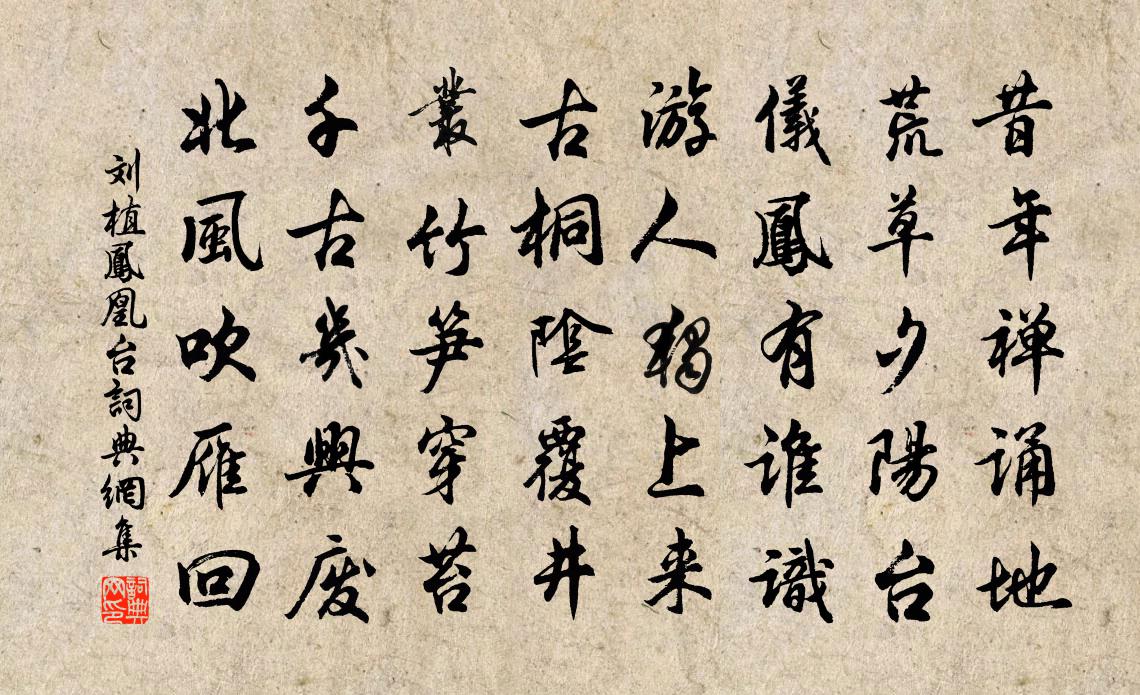 昔年禅诵地
荒草夕陽台
儀鳳有谁識
游人独上来
古桐陰覆井
叢竹笋穿苔
千古幾興废
北風吹雁回
刘植鳳凰台詞典網集
詞典网印